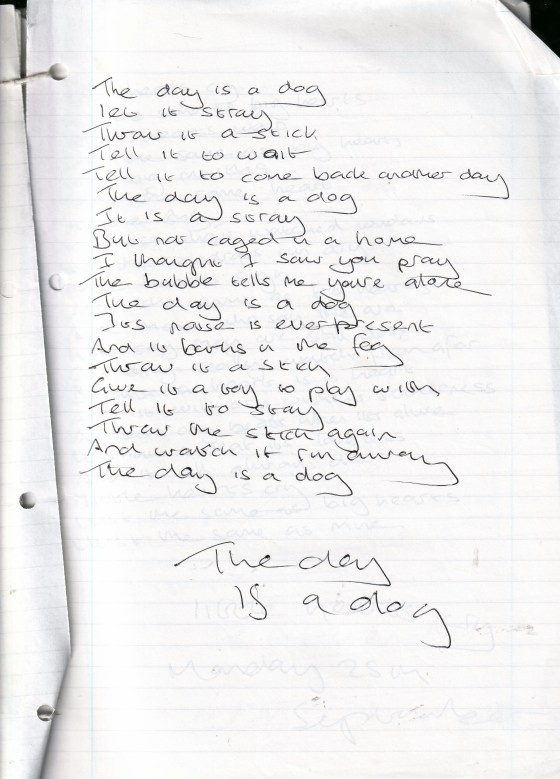 The day is a dog
let it stray
Throw it a stick
Tell it to wait
Tell it to come back another day
The day is a dog
It is a stray
But not caged in a home
I thought I saw you pray
The bubble tells me you're alone
The day is a dog
Its noise is ever present
And it barks in the fog
Throw it a stick
Give it a toy to play with
Tell it to stay
Throw the stick again
And watch it run away
The day is a dog
The day
is a dog
Monday 25th
September